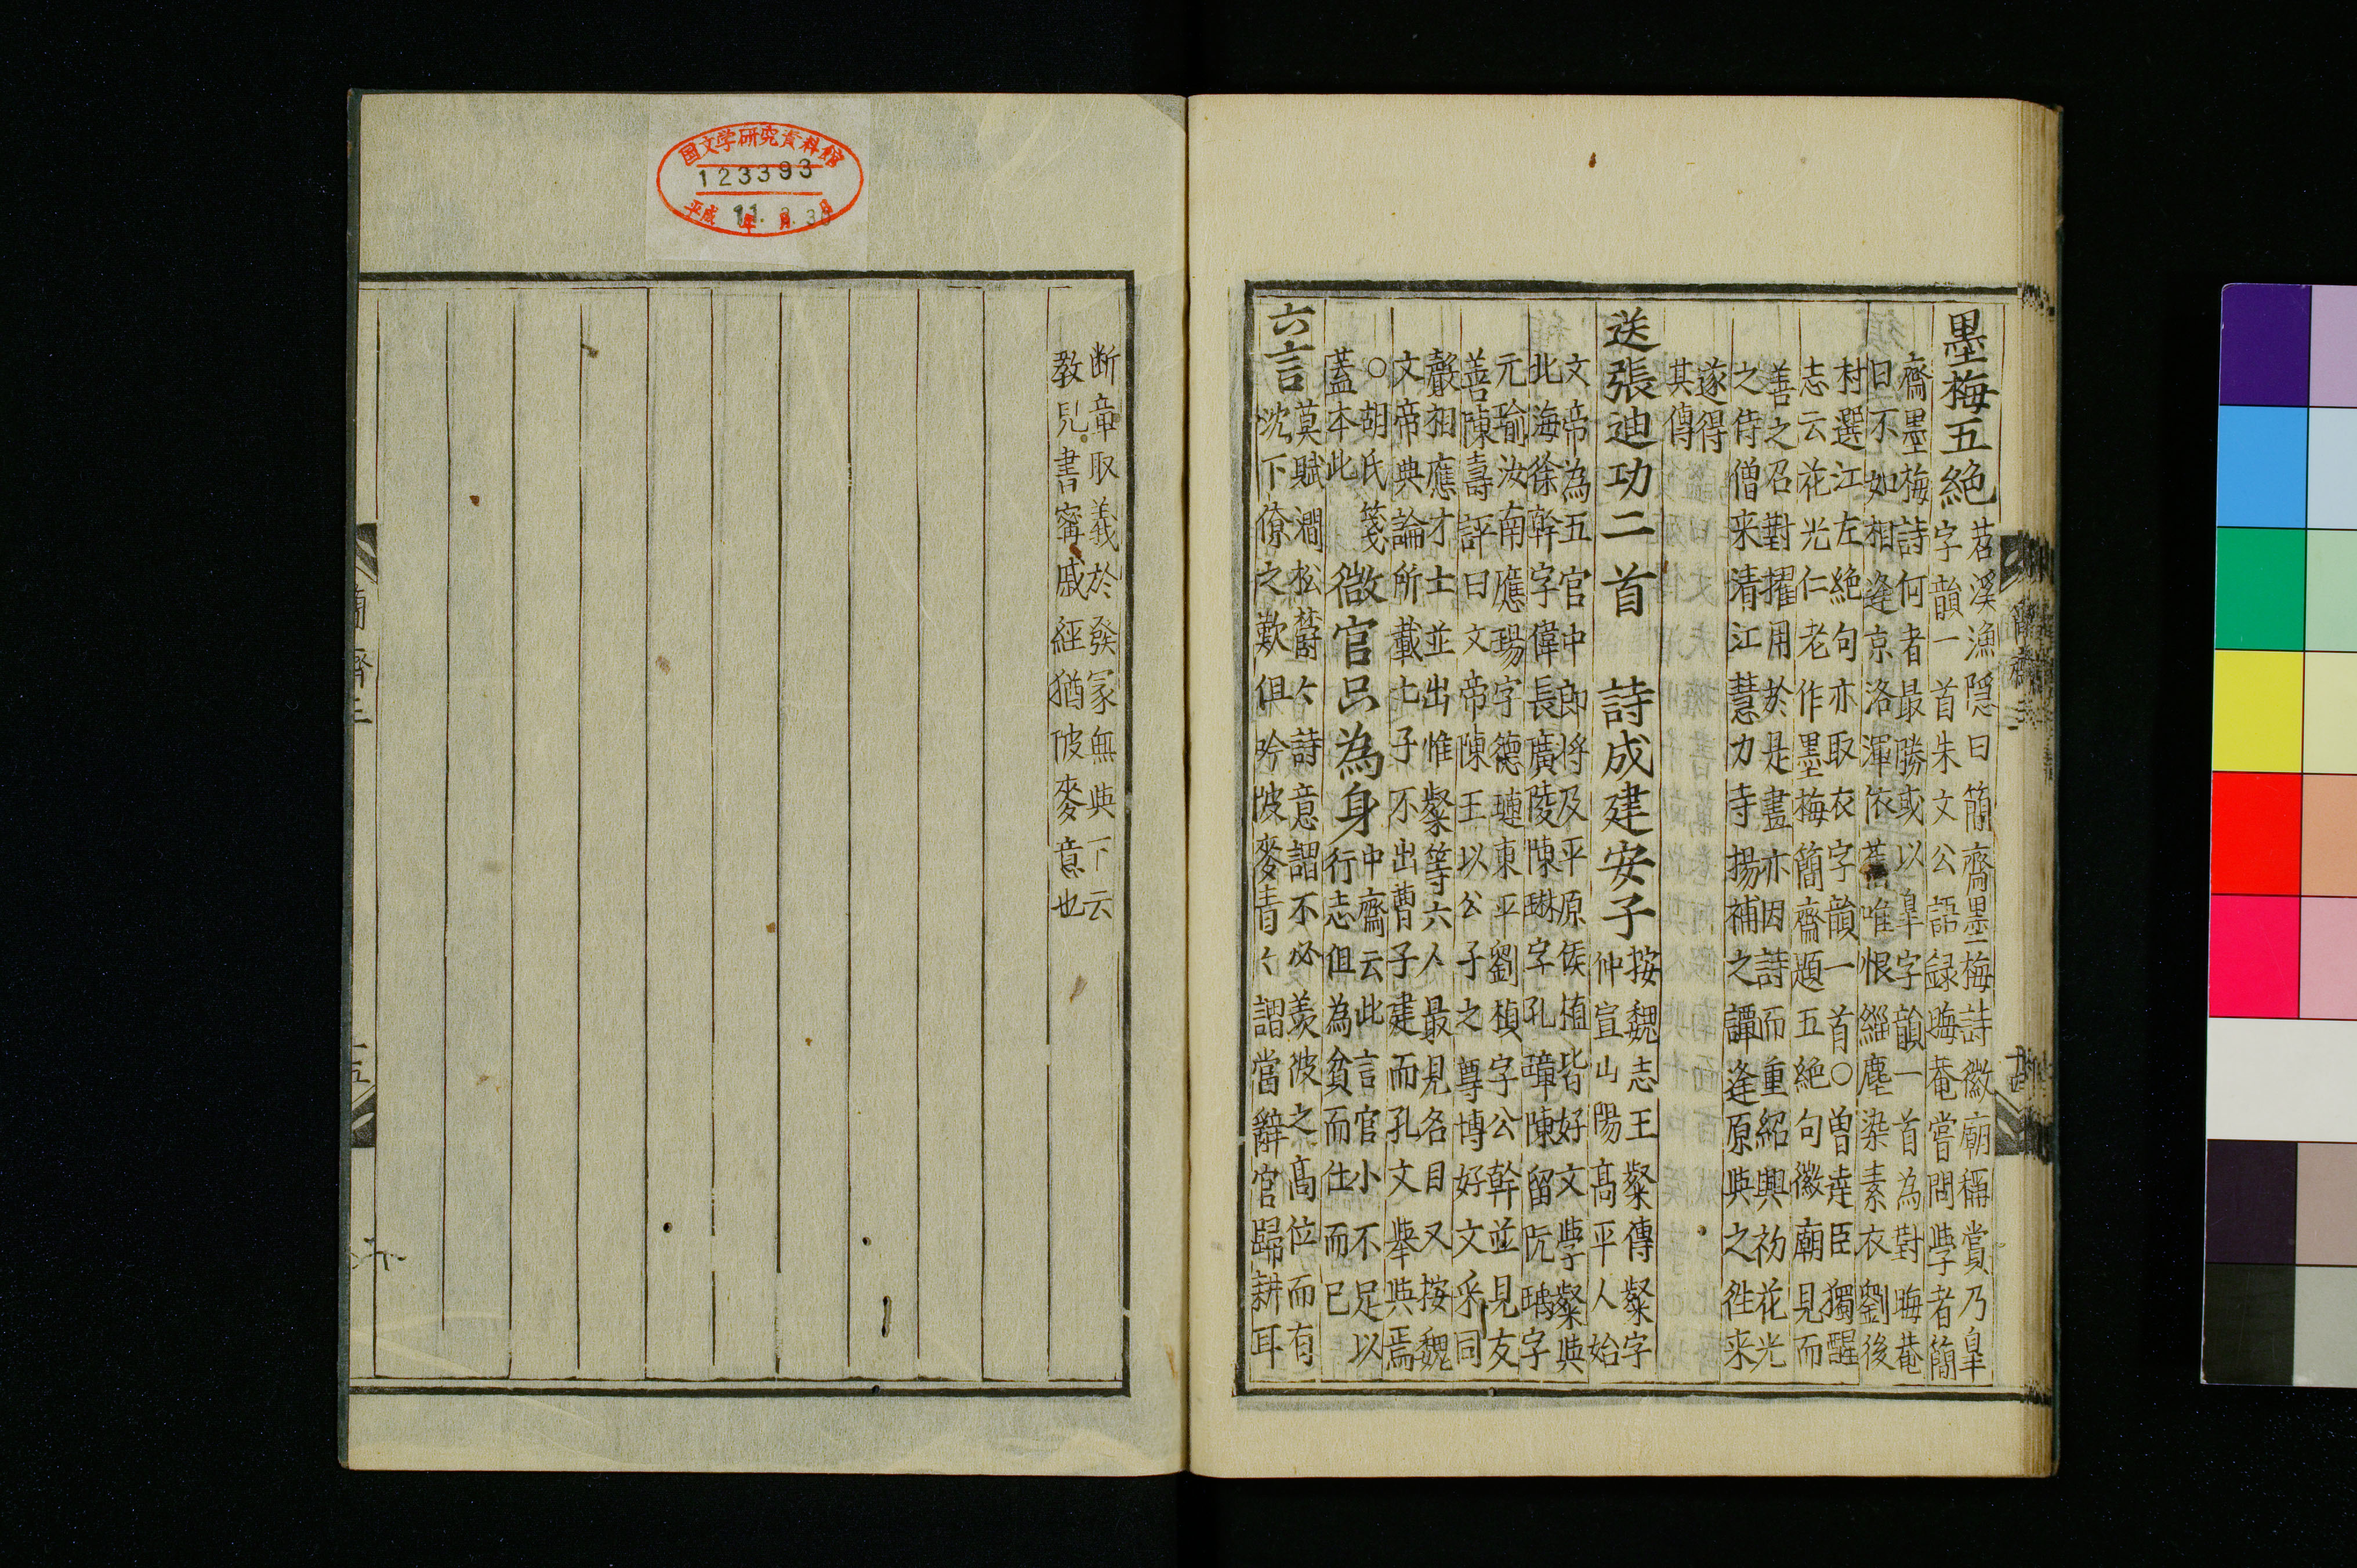 墨梅五絕
苕溪漁隱曰簡齋墨梅詩徽廟稱賞乃皐
字韻一首朱文公語録晦菴嘗問學者簡
齋墨梅詩何者最勝或以皐字韻一首為對晦菴
曰不如相逢京洛渾依舊唯恨緇塵染素衣劉後
村選江左絕句亦取衣字韻一首○曽𨓏臣獨醒
志云花光仁老作墨梅簡齋題五絕句徽廟見而
善之召對擢用於是畫亦因詩而重紹興初花光
之侍僧来清江慧力寺揚補之譚逢原與之徃来
遂得
其傳
送張迪功二首　詩成建安子
按魏志王粲傳粲字
仲宣山陽高平人始
文帝為五官中郎将及平原侯植皆好文學粲與
北海徐幹字偉長廣陵陳琳字孔璋陳留阮瑀字
元瑜汝南應瑒字德璉東平劉楨字公幹並見友
善陳壽評曰文帝陳王以公子之尊博好文采同
聲相應才士並出惟粲等六人最見名目又按魏
文帝典論所載七子不出曹子建而孔文舉與焉
○胡氏箋
蓋本此
微官只為身
中齋云此言官小不足以
行志但為貧而仕而已
六言
莫賦澗松鬱々詩意謂不必羨彼之高位而有
沈下僚之歎但吟陂麥青々謂當辭官歸耕耳
簡齋三
十四
断章取義於發冢無與下云
教兒書寗戚經猶陂麥意也
簡齋三
十五
国文学研究資料館
123393
平成11年3月30日